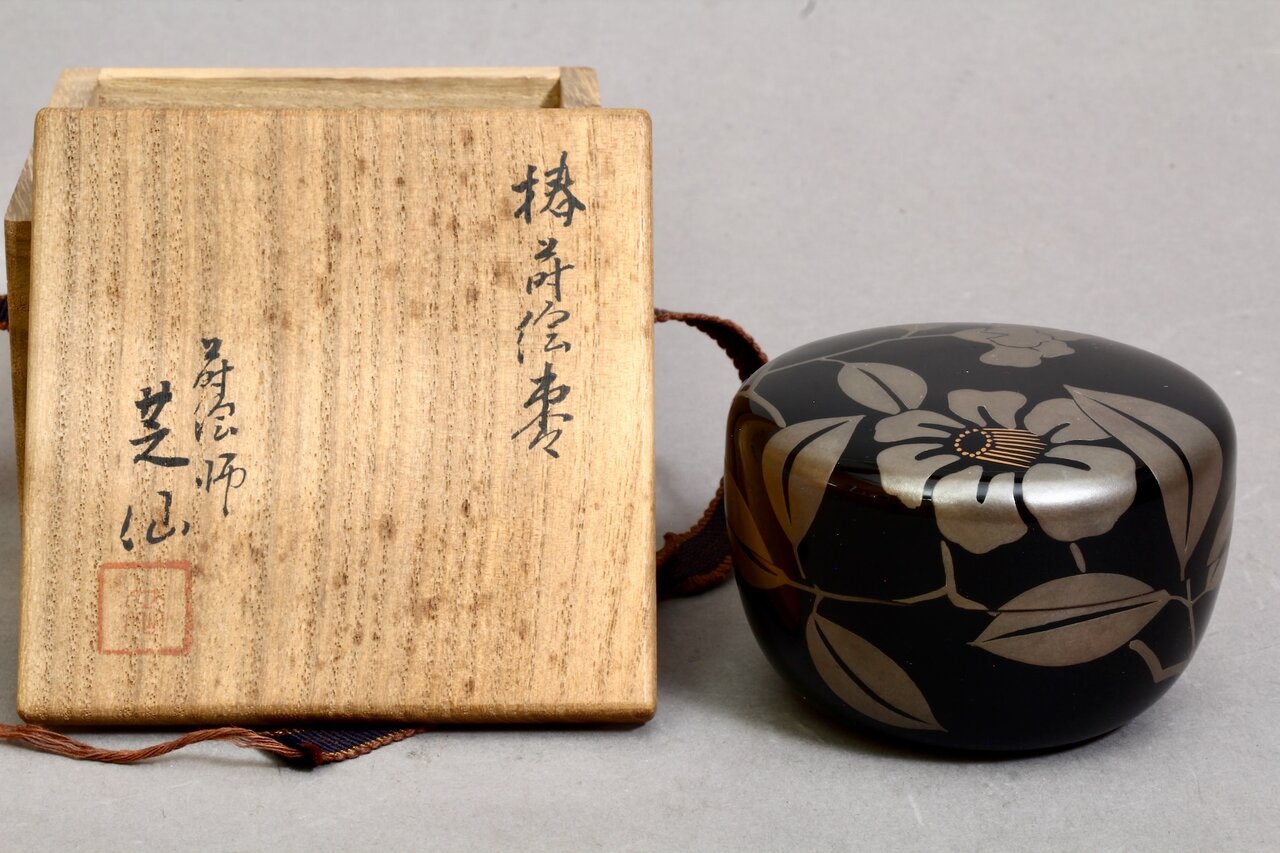 椿蒔絵棗
蒔絵師
芝仙